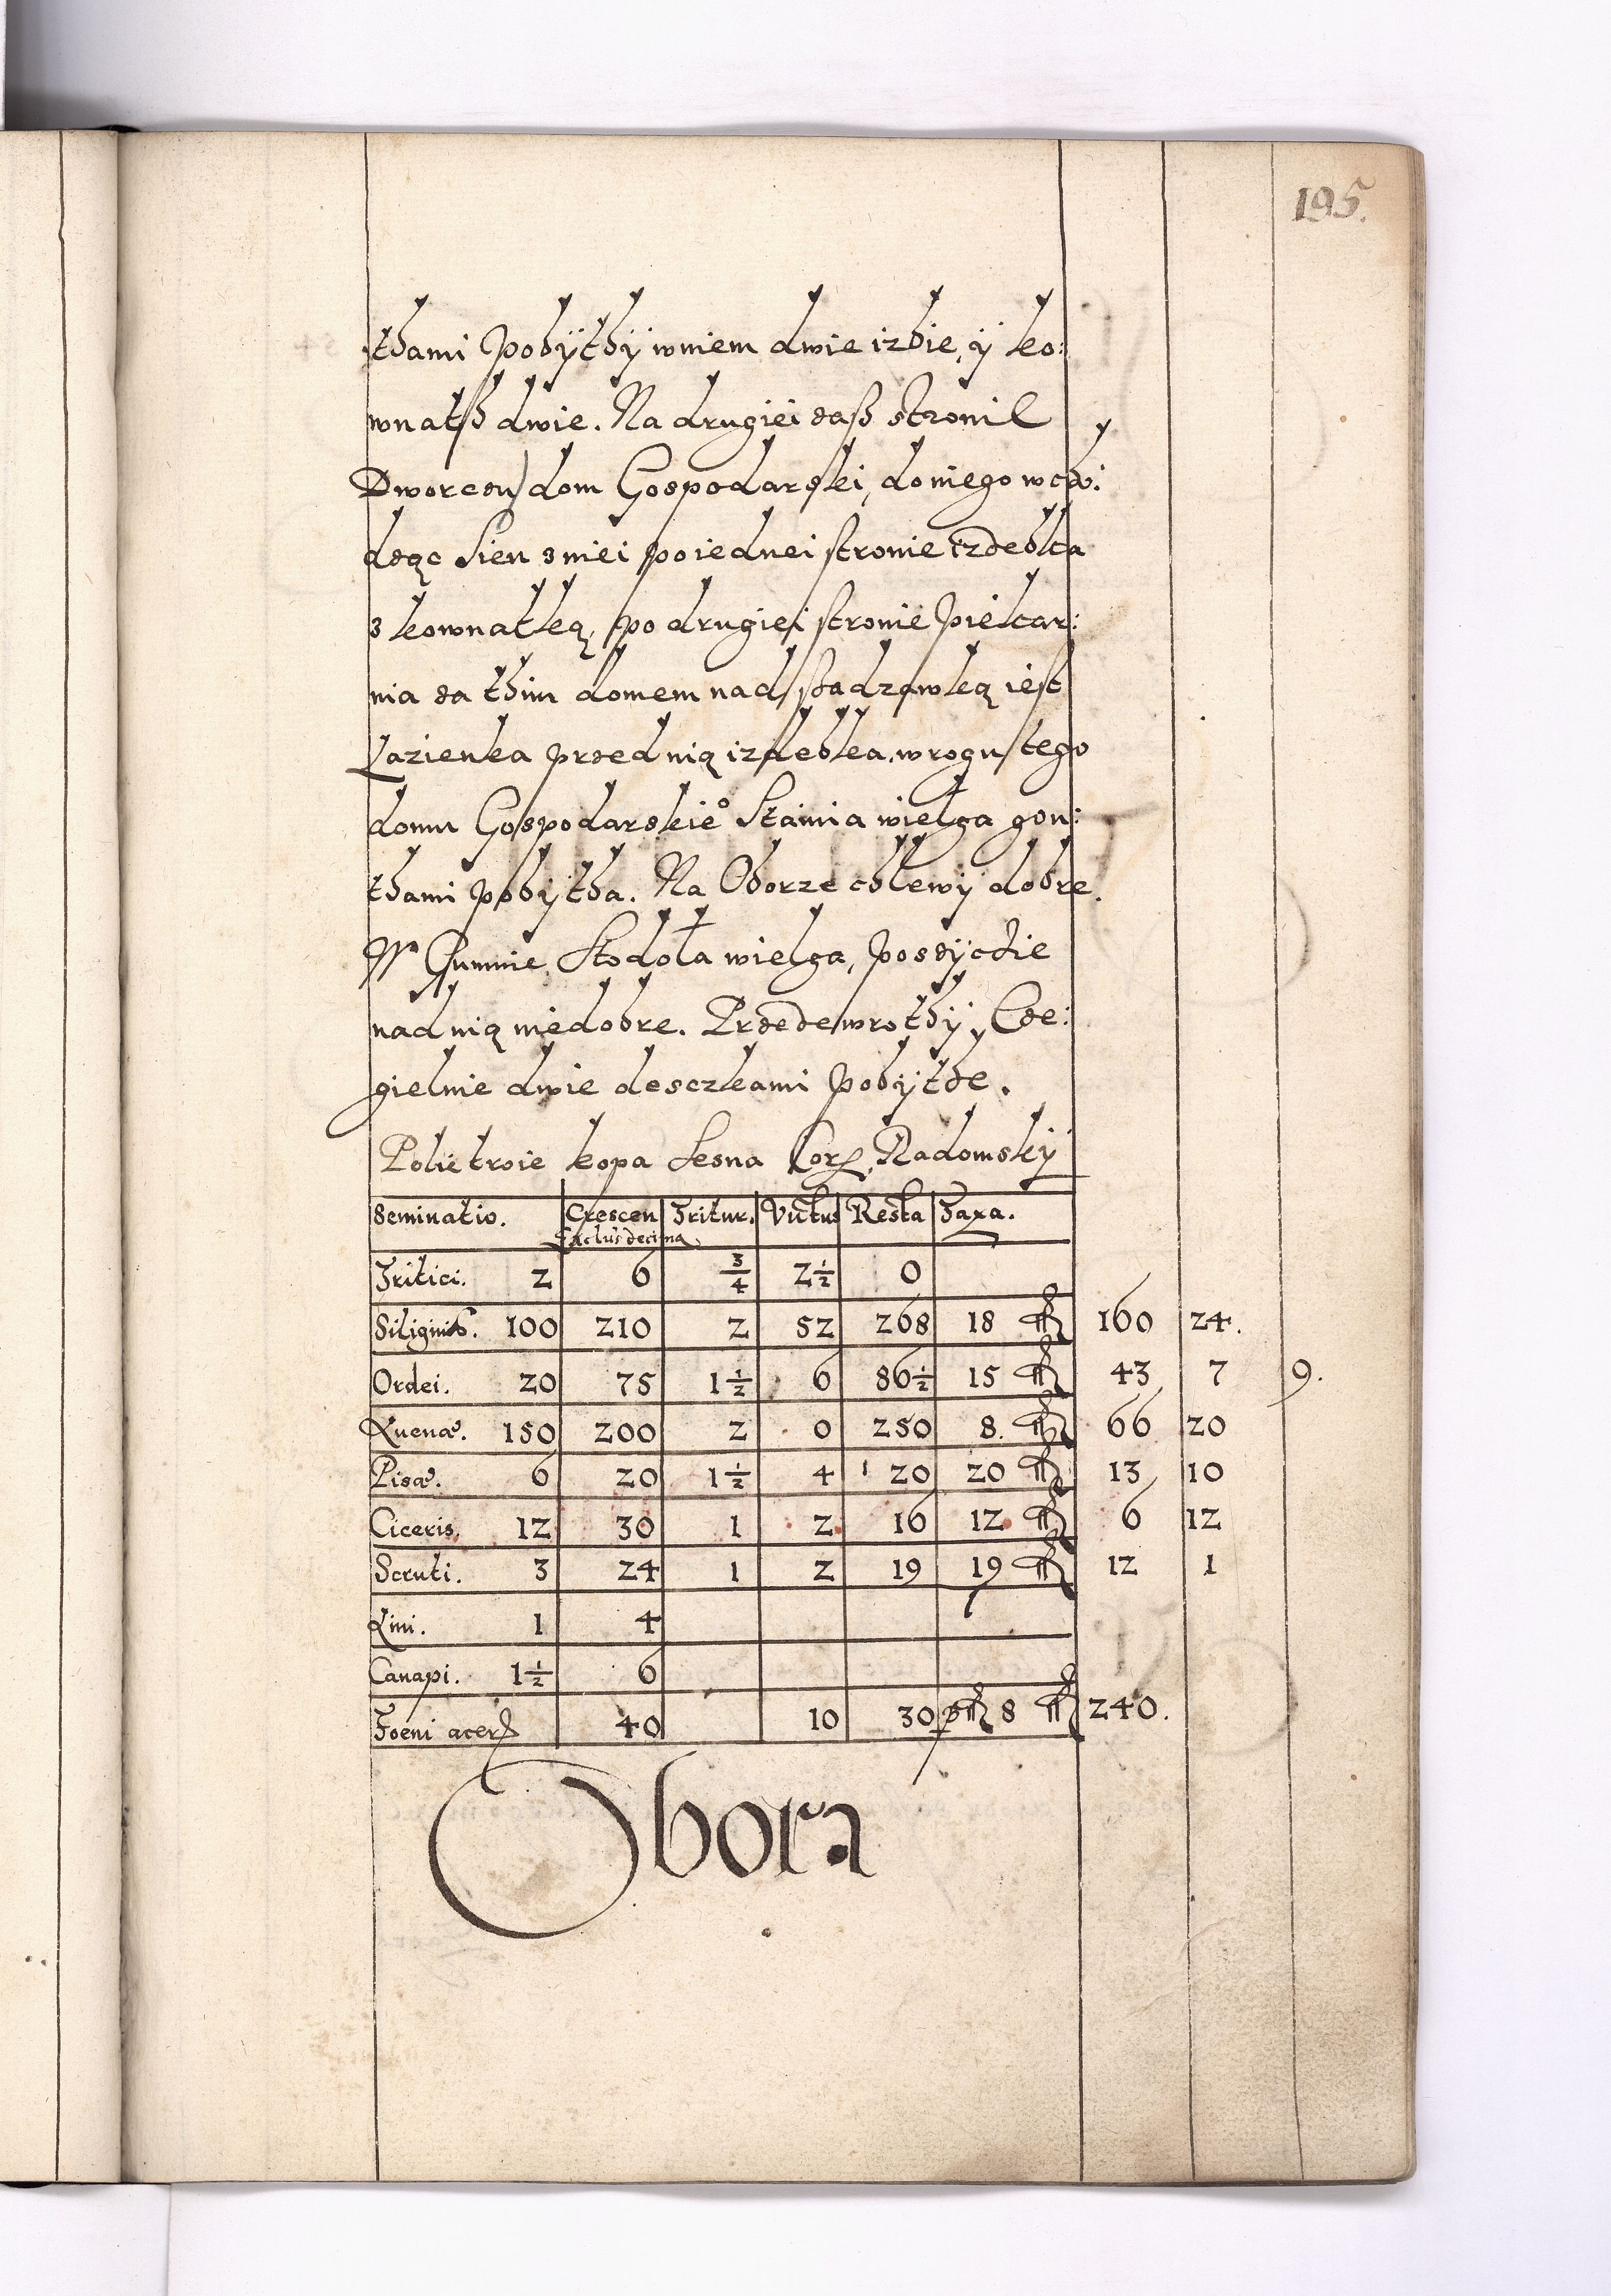 195.
thami pobÿthÿ wniem dwie izbie, ÿ ko:
wnath dwie. Na drugiei zaß stronie
Dworczu dom Gospodarski, do niego wcho:
dząc Sien z niei po iednei stronie izdebka
z kownatką, po drugiei stronie piekar:
nia za thim domem nad sadzawką iest
Łazienka przed nią izdebka. w rogu tego
domu Gospodarskieº Stainia wielga gon:
thami pobÿtha. Na Oborze chlewÿ dobre.
W Gumnie, Stodoła wielga, poszÿchie
nad nią niedobre. Przede wrothÿ, Cze:
gielnie dwie desczkami pobÿthe.
Polietroie kopa Lesna Corz. Radomskÿ
Seminatio. Crescen Tritur. Victus Resta Taxa.
Exclus decima
Tritici. 2 6 3/4 2 1/2 0
Siliginis. 100 210 2 52 268 18 160 24.
Ordei. 20 75 1 1/2 6 86 1/2 15 43 7 9.
Auenæ. 150 200 2 0 250 8. 66 20
Pisæ. 6 20 1 1/2 4 20 20 13 10
Ciceris. 12 30 1 2 16 12 6 12
Scruti. 3 24 1 2 19 19 12 1
Lini. 1 4
Canapi. 1 1/2 6
Foeni acer 40 10 30 8 240.
Obora